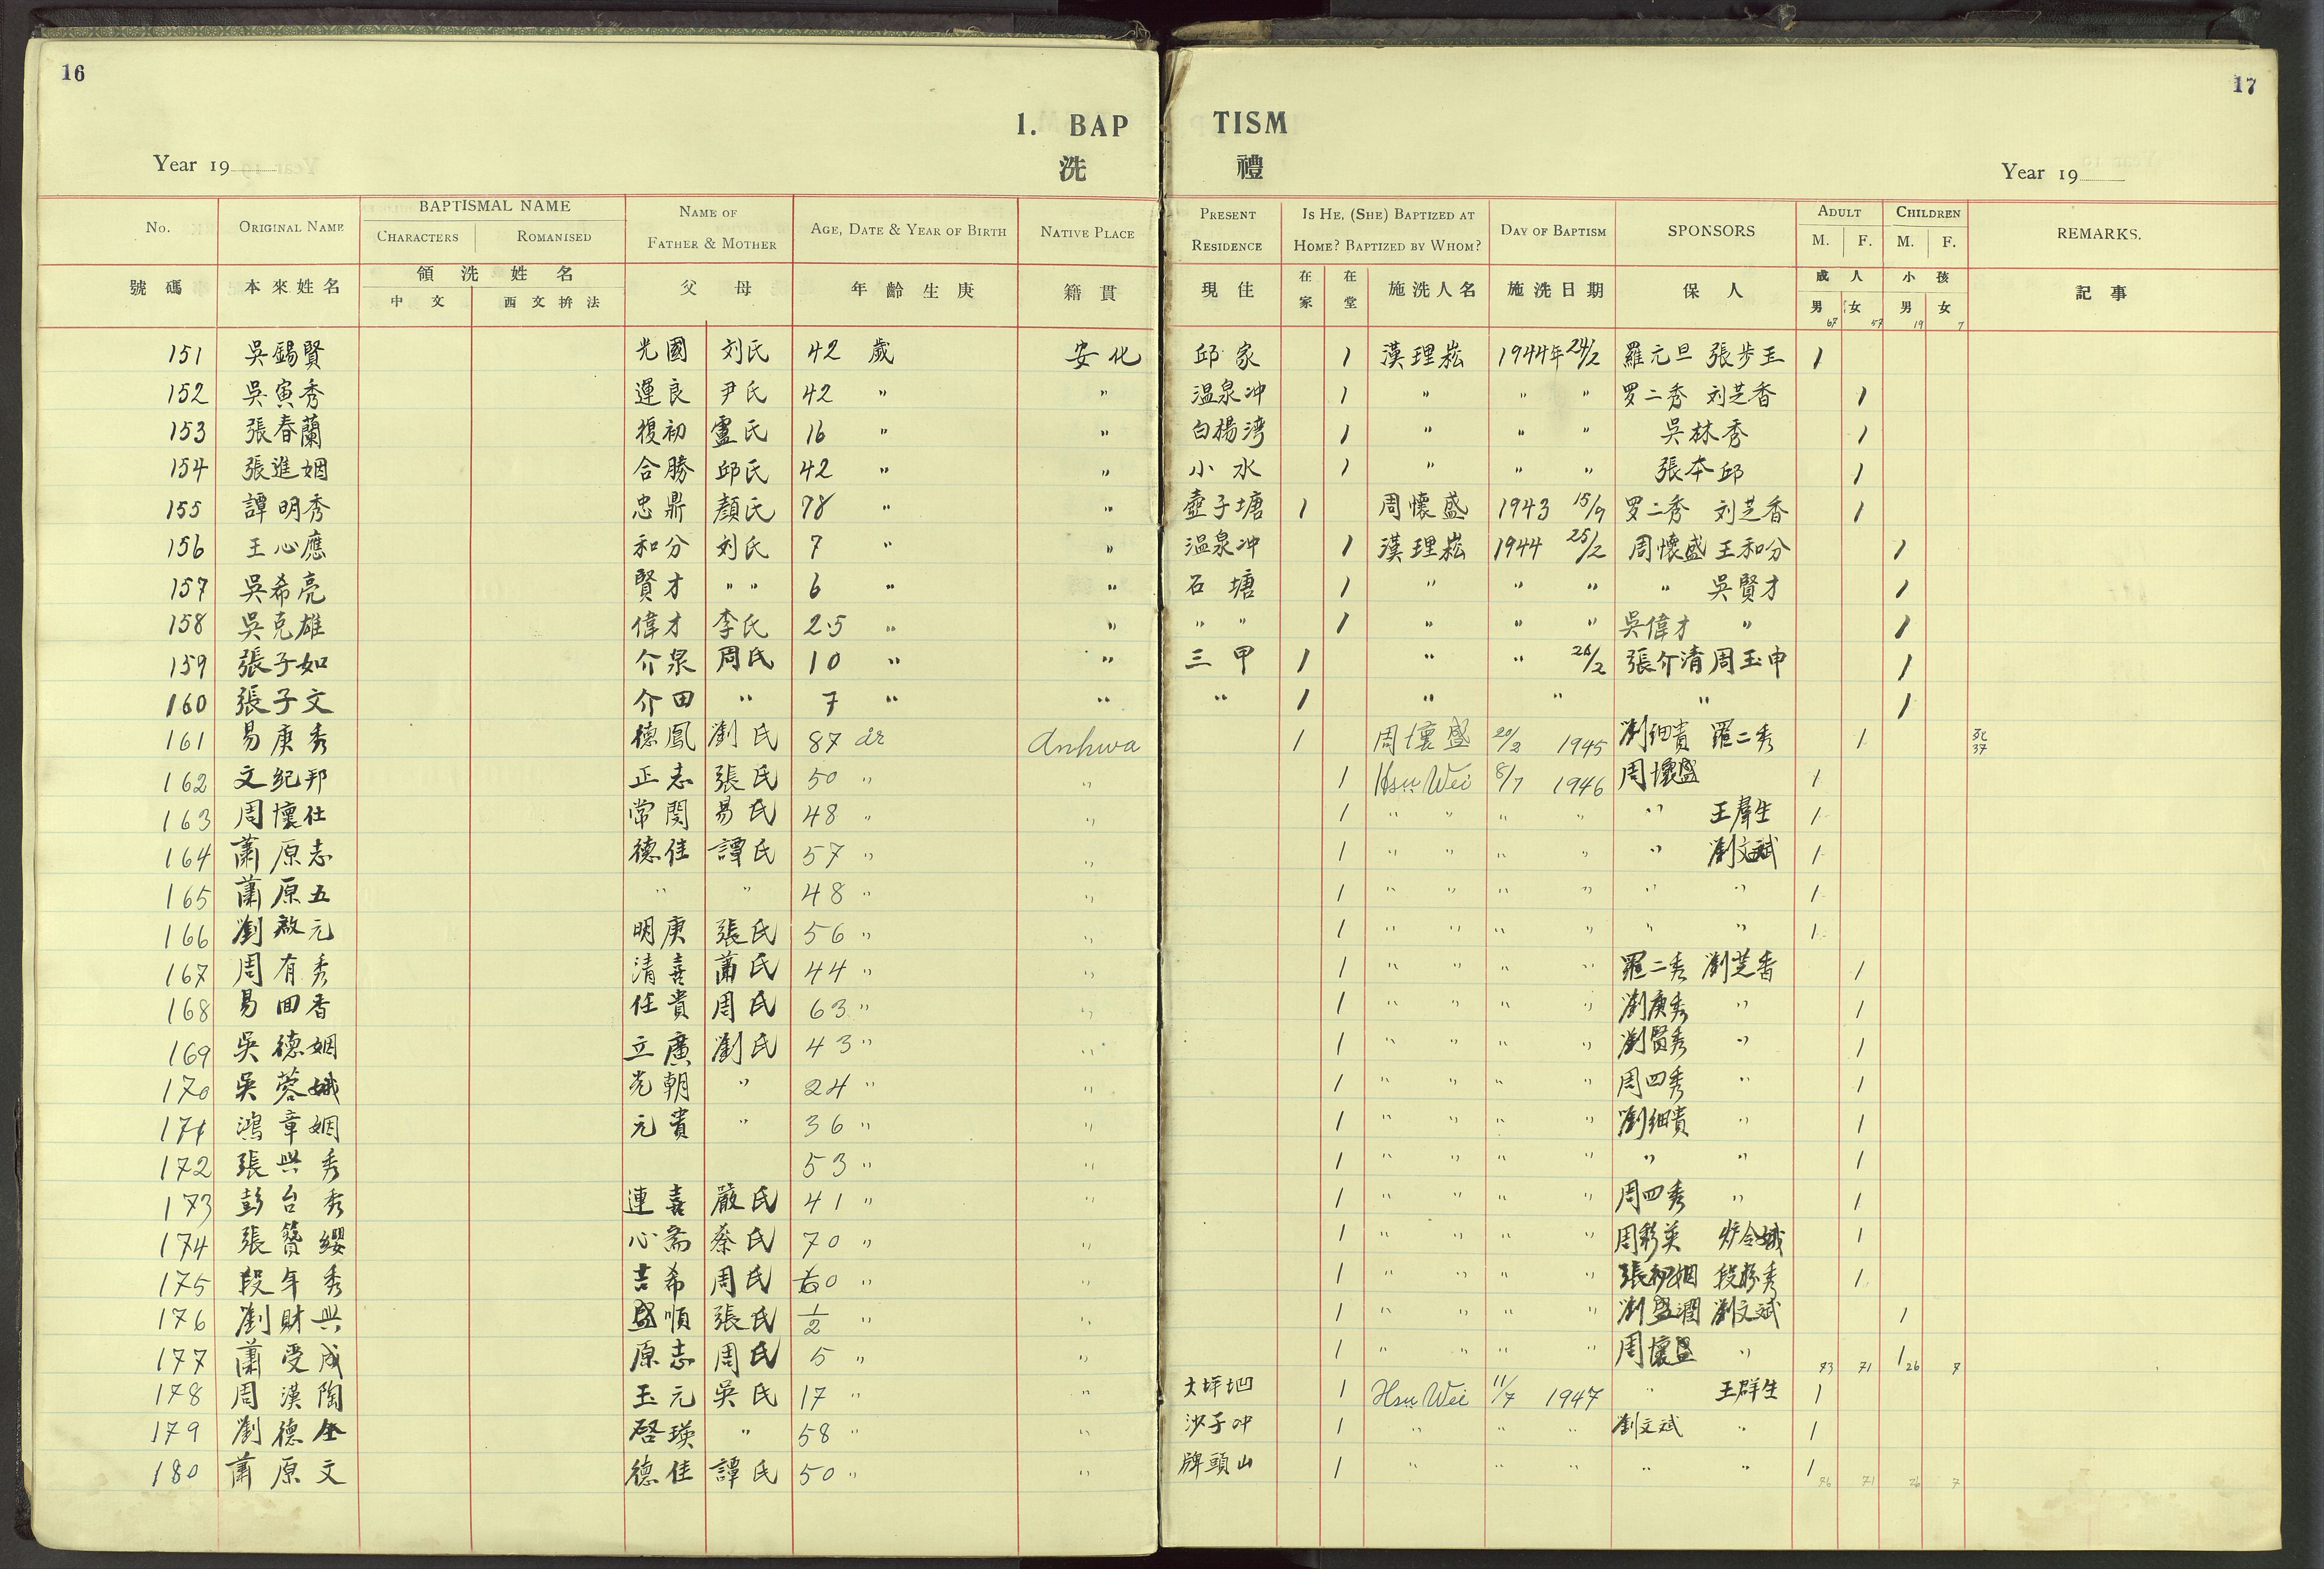 16
17
1. BAP TISM
洗 禮
Year 19 Year 19
No. ORIGINAL NAME BAPTISMAL NAME CHARACTERS ROMANISED NAME OF FATHER & MOTHER AGE, DATE & YEAR OF BIRTH NATIVE PLACE PRESENT RESIDENCE IS HE, (SHE) BAPTIZED AT HOME? BAPTIZED BY WHOM? DAY OF BAPTISM SPONSORS ADULT M. F. CHILDREN M. F. REMARKS.
號碼 本來姓名 領洗姓名 中文 西文拚法 父母 年齡生庚 籍貫 現住 在家 在堂 施洗人名 施洗日期 保人 成人 男 女 小孩 男 女 記事
67 57 19 7
151 吳錫賢 光國 刘氏 42 歲 安化 邱家 1 漢理崧 1944年24/2 羅元旦 張步玉 1
152 吳寅秀 運良 尹氏 42 " " 温泉冲 1 " " " 罗二秀 刘芝香 1
153 張春蘭 復初 盧氏 16 " " 白楊湾 1 " " " 吳林秀 1
154 張進姻 合勝 邱氏 42 " " 小水 1 " " " 張本邱 1
155 譚明秀 忠鼎 顏氏 78 " " 壺子塘 1 周懷盛 1943 15/9 罗二秀 刘芝香 1
156 王心應 和分 刘氏 7 " " 温泉冲 1 漢理崧 1944 25/2 周懷盛 王和分 1
157 吳希亮 賢才 " " 6 " " 石塘 1 " " " " 吳賢才 1
158 吳克雄 偉才 李氏 2.5 " " " " 1 " " " 吳偉才 " 1
159 張子如 介泉 周氏 10 " " 三甲 1 " " 26/2 張介清 周玉申 1
160 張子文 介田 " 7 " " " 1 " " " 1
161 易庚秀 德鳳 劉氏 87 år Anhwa 1 周懷盛 20/2 1945 劉細貴 羅二秀 1 死 37
162 文紀邦 正志 張氏 50 " " 1 Hsu Wei 8/7 1946 周懷盛 1
163 周懷仕 常閔 易氏 48 " " 1 " " " " " 王羣生 1
164 蕭原志 德佳 譚氏 57 " " 1 " " " " " 劉文斌 1
165 蕭原五 " " 48 " " 1 " " " " " " 1
166 劉啟元 明庚 張氏 56 " " 1 " " " " " " 1
167 周有秀 清喜 蕭氏 44 " " 1 " " " " 羅二秀 劉芝香 1
168 易回香 任貴 周氏 63 " " 1 " " " " 劉庚秀 " 1
169 吳德姻 立廣 劉氏 43 " " 1 " " " " 劉賢秀 " 1
170 吳蓉娥 光朝 " 24 " " 1 " " " " 周四秀 " 1
171 鴻章姻 元貴 " 36 " " 1 " " " " 劉細貴 " 1
172 張興秀 53 " " 1 " " " " " " 1
173 彭台秀 連喜 嚴氏 41 " " 1 " " " " 周四秀 " 1
174 張簪纓 心斋 蔡氏 70 " " 1 " " " " 周彩英 令娥 1
175 段年秀 吉希 周氏 60 " " 1 " " " " 張初姻 段秀 1
176 劉財興 盛順 張氏 1/2 " " 1 " " " " 劉盛潤 劉文斌 1
177 蕭受成 原志 周氏 5 " " 1 " " " " 周懷盛 " 73 71 1 26 7
178 周漢陶 玉元 吳氏 17 " " 大坪坳 1 Hsu Wei 11/7 1947 " 王群生 1
179 劉德全 啓瑛 " 58 " " 沙子冲 1 " " " 劉文斌 " 1
180 蕭原文 德佳 譚氏 50 " " 牌頭山 1 " " " " " 1 76 71 26 7